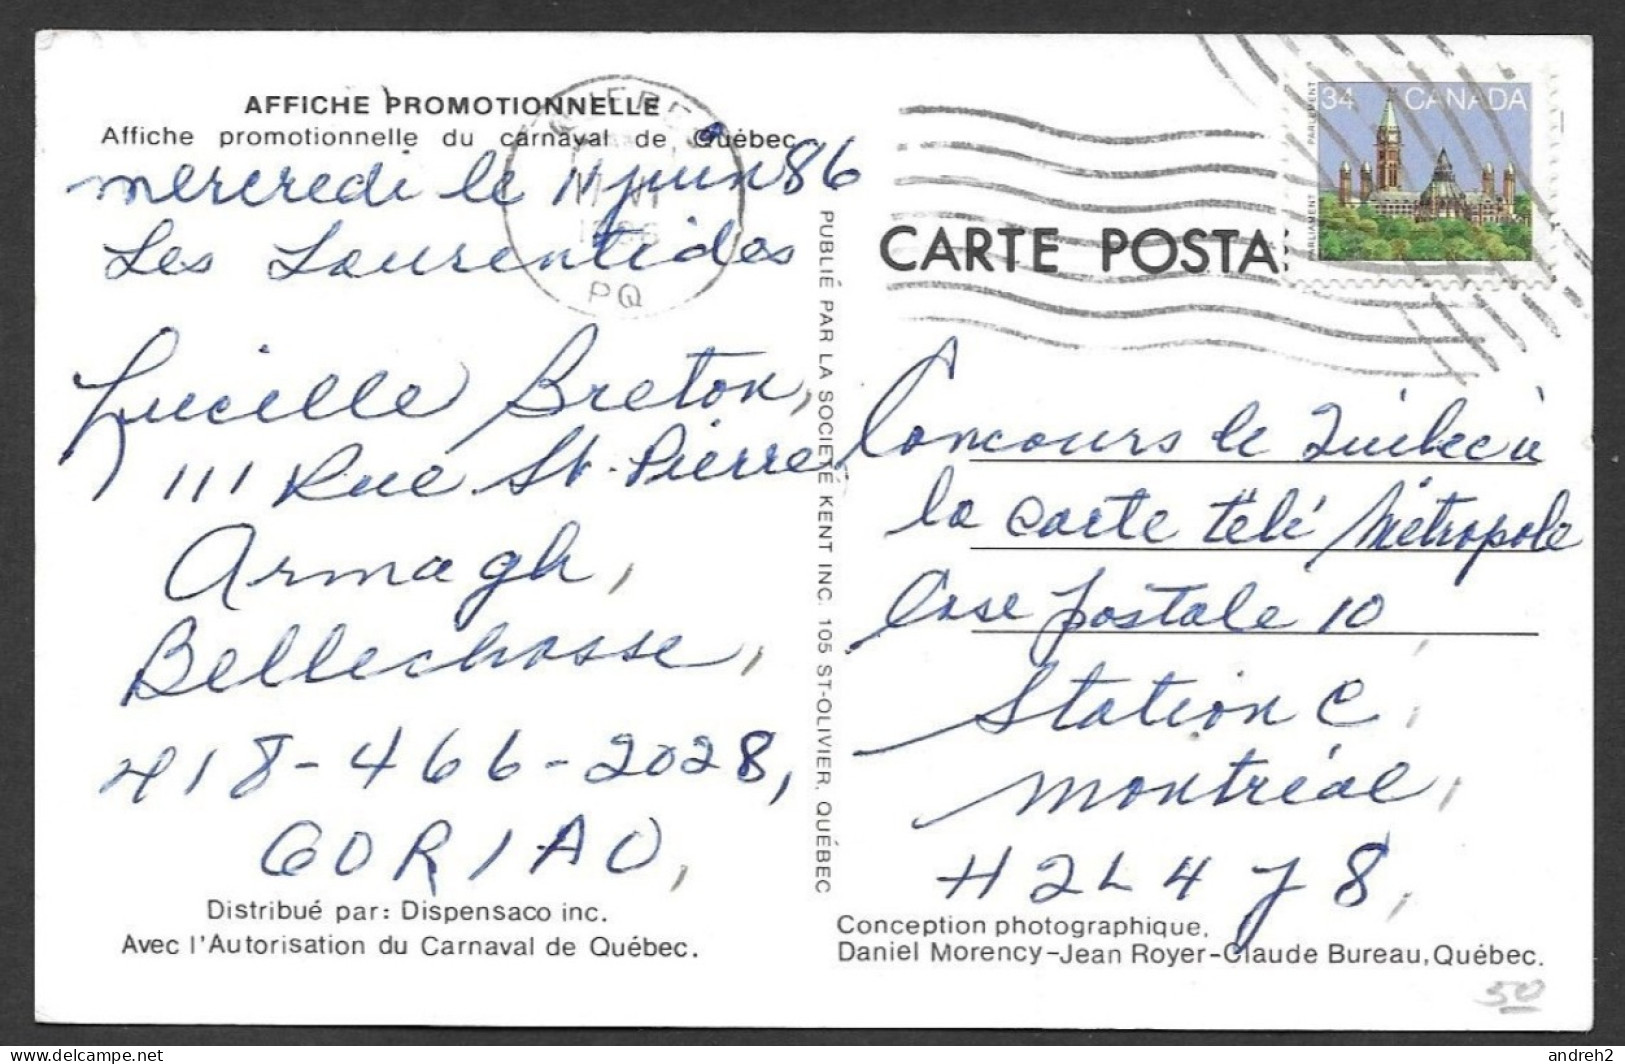 AFFICHE PROMOTIONNELLE
Affiche promotionnelle du carnaval de Québec
mercredi le 11 juin 86
Les Laurentides
Lucille Breton,
111 Rue St-Pierre
Armagh,
Bellechasse,
418-466-2028,
G0R1A0,
Distribué par: Dispensaco inc.
Avec l'Autorisation du Carnaval de Québec.
PUBLIÉ PAR LA SOCIÉTÉ KENT INC. 105 ST-OLIVIER, QUÉBEC
QUEBEC
1986
PQ
34 CANADA
PARLIAMENT PARLEMENT
CARTE POSTA
Concours le Québec à
la carte télé Métropole
Case postale 10,
Station C,
Montréal,
H2L4J8,
Conception photographique,
Daniel Morency-Jean Royer-Claude Bureau, Québec.
50
delcampe.net
andreh2